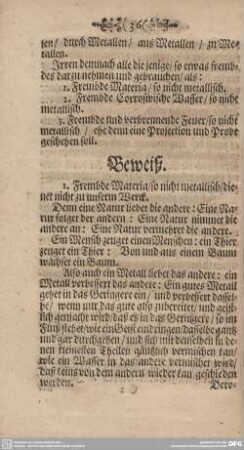 36
sen/ durch Metallen/ aus Metallen/ zu Me-
tallen.
Irren demnach alle die jenige/ so etwas fremb-
des darzu nehmen und gebrauchen/ als:
1. Frembde Materia/ so nicht metallisch.
2. Frembde Corrosivische Wasser/ so nicht
metallisch.
3. Frembde und verbrennende Feuer/ so nicht
metallisch/ ehe denn eine Projection und Probe
geschehen soll.
Beweiß.
1. Frembde Materia/ so nicht metallisch/ die-
net nicht zu unserm Werck.
Denn eine Natur lieber die andere: Eine Na-
tur folget der andern: Eine Natur nimmet die
andere an: Eine Natur vermehret die andere.
Ein Mensch zeuget einen Menschen: ein Thier
zeuget ein Thier: Von und aus einem Baum
wächset ein Baum.
Also auch ein Metall liebet das andere: ein
Metall verbessert das andere: Ein gutes Metall
gehet in das Geringere ein/ und verbessert dassel-
be/ wenn nur das gute also zubereitet/ und geist-
lich gemacht wird/ daß es in das Geringere/ so im
Fluß stehet/ wie ein Geist eindringen/ dasselbe gantz
und gar durchgehen/ und sich mit denselben in
denen kleinesten Theilen gäntzlich vermischen kan/
wie ein Wasser in das andere vermischet wird/
daß keins von dem andern wieder kan geschieden
werden.
Dero-